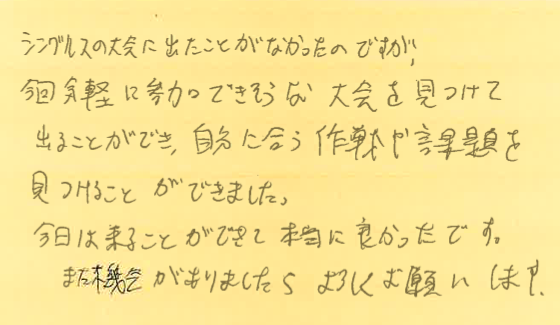 シングルスの大会に出たことがなかったのですが、
今回気軽に参加できそうな大会を見つけて
出ることができ、自分に合う作戦や課題を
見つけることができました。
今日は来ることができて本当に良かったです。
また機会がありましたらよろしくお願いします。